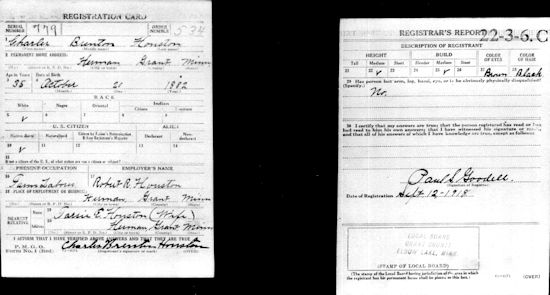 REGISTRATION CARD
SERIAL NUMBER 779 ORDER NUMBER 534
Charlie Burton Houston
PERMANENT HOME ADDRESS:
Herman Grant Minn
Age in Years Date of Birth
36 October 21 1882
RACE
White Negro Oriental Indian
Citizen Noncitizen
U. S. CITIZEN ALIEN
Native Born Naturalized Declarant
If not a citizen of the U. S., of what nation are you a citizen or subject?
PRESENT OCCUPATION EMPLOYER'S NAME
Farm Labour Robert R. Houston
PLACE OF EMPLOYMENT OR BUSINESS:
Herman, Grant Minn
NEAREST RELATIVE Name E. Houston (Wife)
Address Herman Grant Minn
I AFFIRM THAT I HAVE VERIFIED ABOVE ANSWERS AND THAT THEY ARE TRUE
P. M. G. O.
Form No. 1 (Red) Houston
REGISTRAR'S REPORT 22-3-6. C
DESCRIPTION OF REGISTRANT
HEIGHT BUILD COLOR OF EYES COLOR OF HAIR
Tall Medium Short Slender Medium Stout
Brown Black
Has person lost arm, leg, hand, eye, or is he obviously physically disqualified?
(Specify.)
No.
I certify that my answers are true; that the person registered has read or has
had read to him his own answers; that I have witnessed his signature or mark,
and that all of his answers of which I have knowledge are true, except as follows:
Paul S. Goodell
(Signature of Registrar)
Date of Registration Sept. 12-1918
LOCAL BOARD
GRANT COUNTY
ELBOW LAKE, MINN.
(STAMP OF LOCAL BOARD)
(The stamp of the Local Board having jurisdiction of the area in which the
registrant has his permanent home shall be placed in this box.)
(OVER)